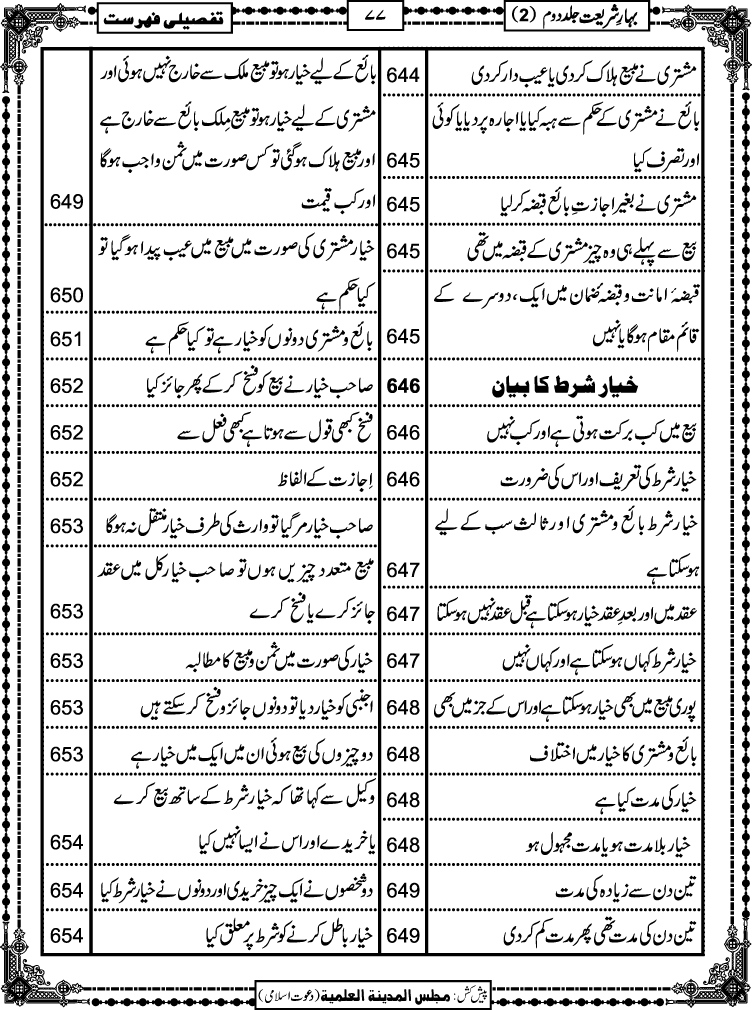 بہارِشریعت جلد دوم (2)
۷۷
تفصیلی فہرست
مشتری نے مبیع ہلاک کردی یا عیب دار کردی 644
بائع نے مشتری کے حکم سے ہبہ کیا یا اجارہ پر دیا یا کوئی
اور تصرف کیا 645
مشتری نے بغیر اجازتِ بائع قبضہ کرلیا 645
بیع سے پہلے ہی وہ چیز مشتری کے قبضہ میں تھی 645
قبضۂ امانت و قبضۂ ضمان میں ایک، دوسرے کے
قائم مقام ہوگا یا نہیں 645
خیار شرط کا بیان 646
بیع میں کب برکت ہوتی ہے اور کب نہیں 646
خیار شرط کی تعریف اور اس کی ضرورت 646
خیار شرط بائع و مشتری اور ثالث سب کے لیے
ہوسکتا ہے 647
عقد میں اور بعدِ عقد خیار ہوسکتا ہے قبل عقد نہیں ہوسکتا 647
خیار شرط کہاں ہوسکتا ہے اور کہاں نہیں 647
پوری مبیع میں بھی خیار ہوسکتا ہے اور اس کے جز میں بھی 648
بائع و مشتری کا خیار میں اختلاف 648
خیار کی مدت کیا ہے 648
خیار بلا مدت ہو یا مدت مجہول ہو 648
تین دن سے زیادہ کی مدت 649
تین دن کی مدت تھی پھر مدت کم کردی 649
بائع کے لیے خیار ہو تو مبیع ملک سے خارج نہیں ہوئی اور
مشتری کے لیے خیار ہو تو مبیع مِلک بائع سے خارج ہے
اور مبیع ہلاک ہوگئی تو کس صورت میں ثمن واجب ہوگا
اور کب قیمت 649
خیار مشتری کی صورت میں مبیع میں عیب پیدا ہوگیا تو
کیا حکم ہے 650
بائع و مشتری دونوں کو خیار ہے تو کیا حکم ہے 651
صاحب خیار نے بیع کو فسخ کرکے پھر جائز کیا 652
فسخ کبھی قول سے ہوتا ہے کبھی فعل سے 652
اِجازت کے الفاظ 652
صاحب خیار مرگیا تو وارث کی طرف خیار منتقل نہ ہوگا 653
مبیع متعدد چیزیں ہوں تو صاحب خیار کل میں عقد
جائز کرے یا فسخ کرے 653
خیار کی صورت میں ثمن و مبیع کا مطالبہ 653
اجنبی کو خیار دیا تو دونوں جائز و فسخ کرسکتے ہیں 653
دو چیزوں کی بیع ہوئی ان میں ایک میں خیار ہے 653
وکیل سے کہا تھا کہ خیار شرط کے ساتھ بیع کرے
یا خریدے اور اس نے ایسا نہیں کیا 654
دو شخصوں نے ایک چیز خریدی اور دونوں نے خیار شرط کیا 654
خیار باطل کرنے کو شرط پر معلق کیا 654
پیش کش: مجلس المدینۃ العلمیۃ (دعوت اسلامی)